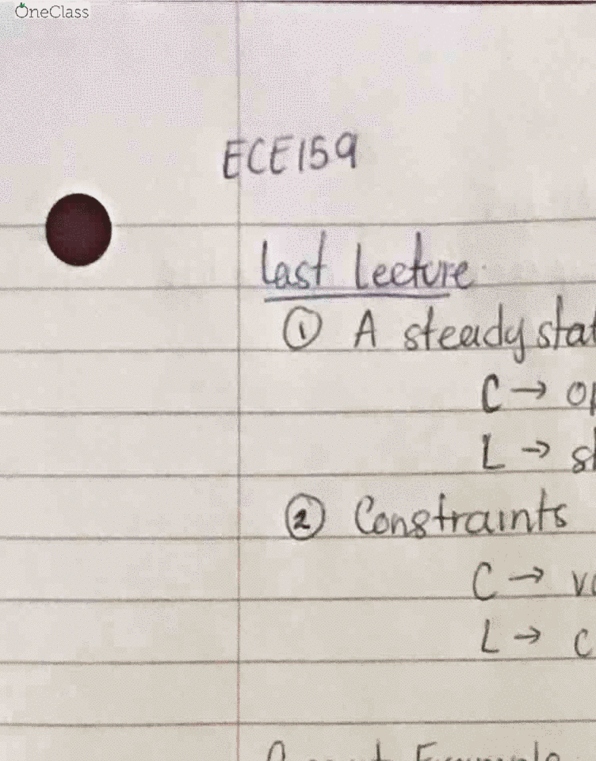 OneClass
ECE159
Last Lecture
① A steady stat
C → op
L → sh
② Constraints
C → vo
L → c
Example